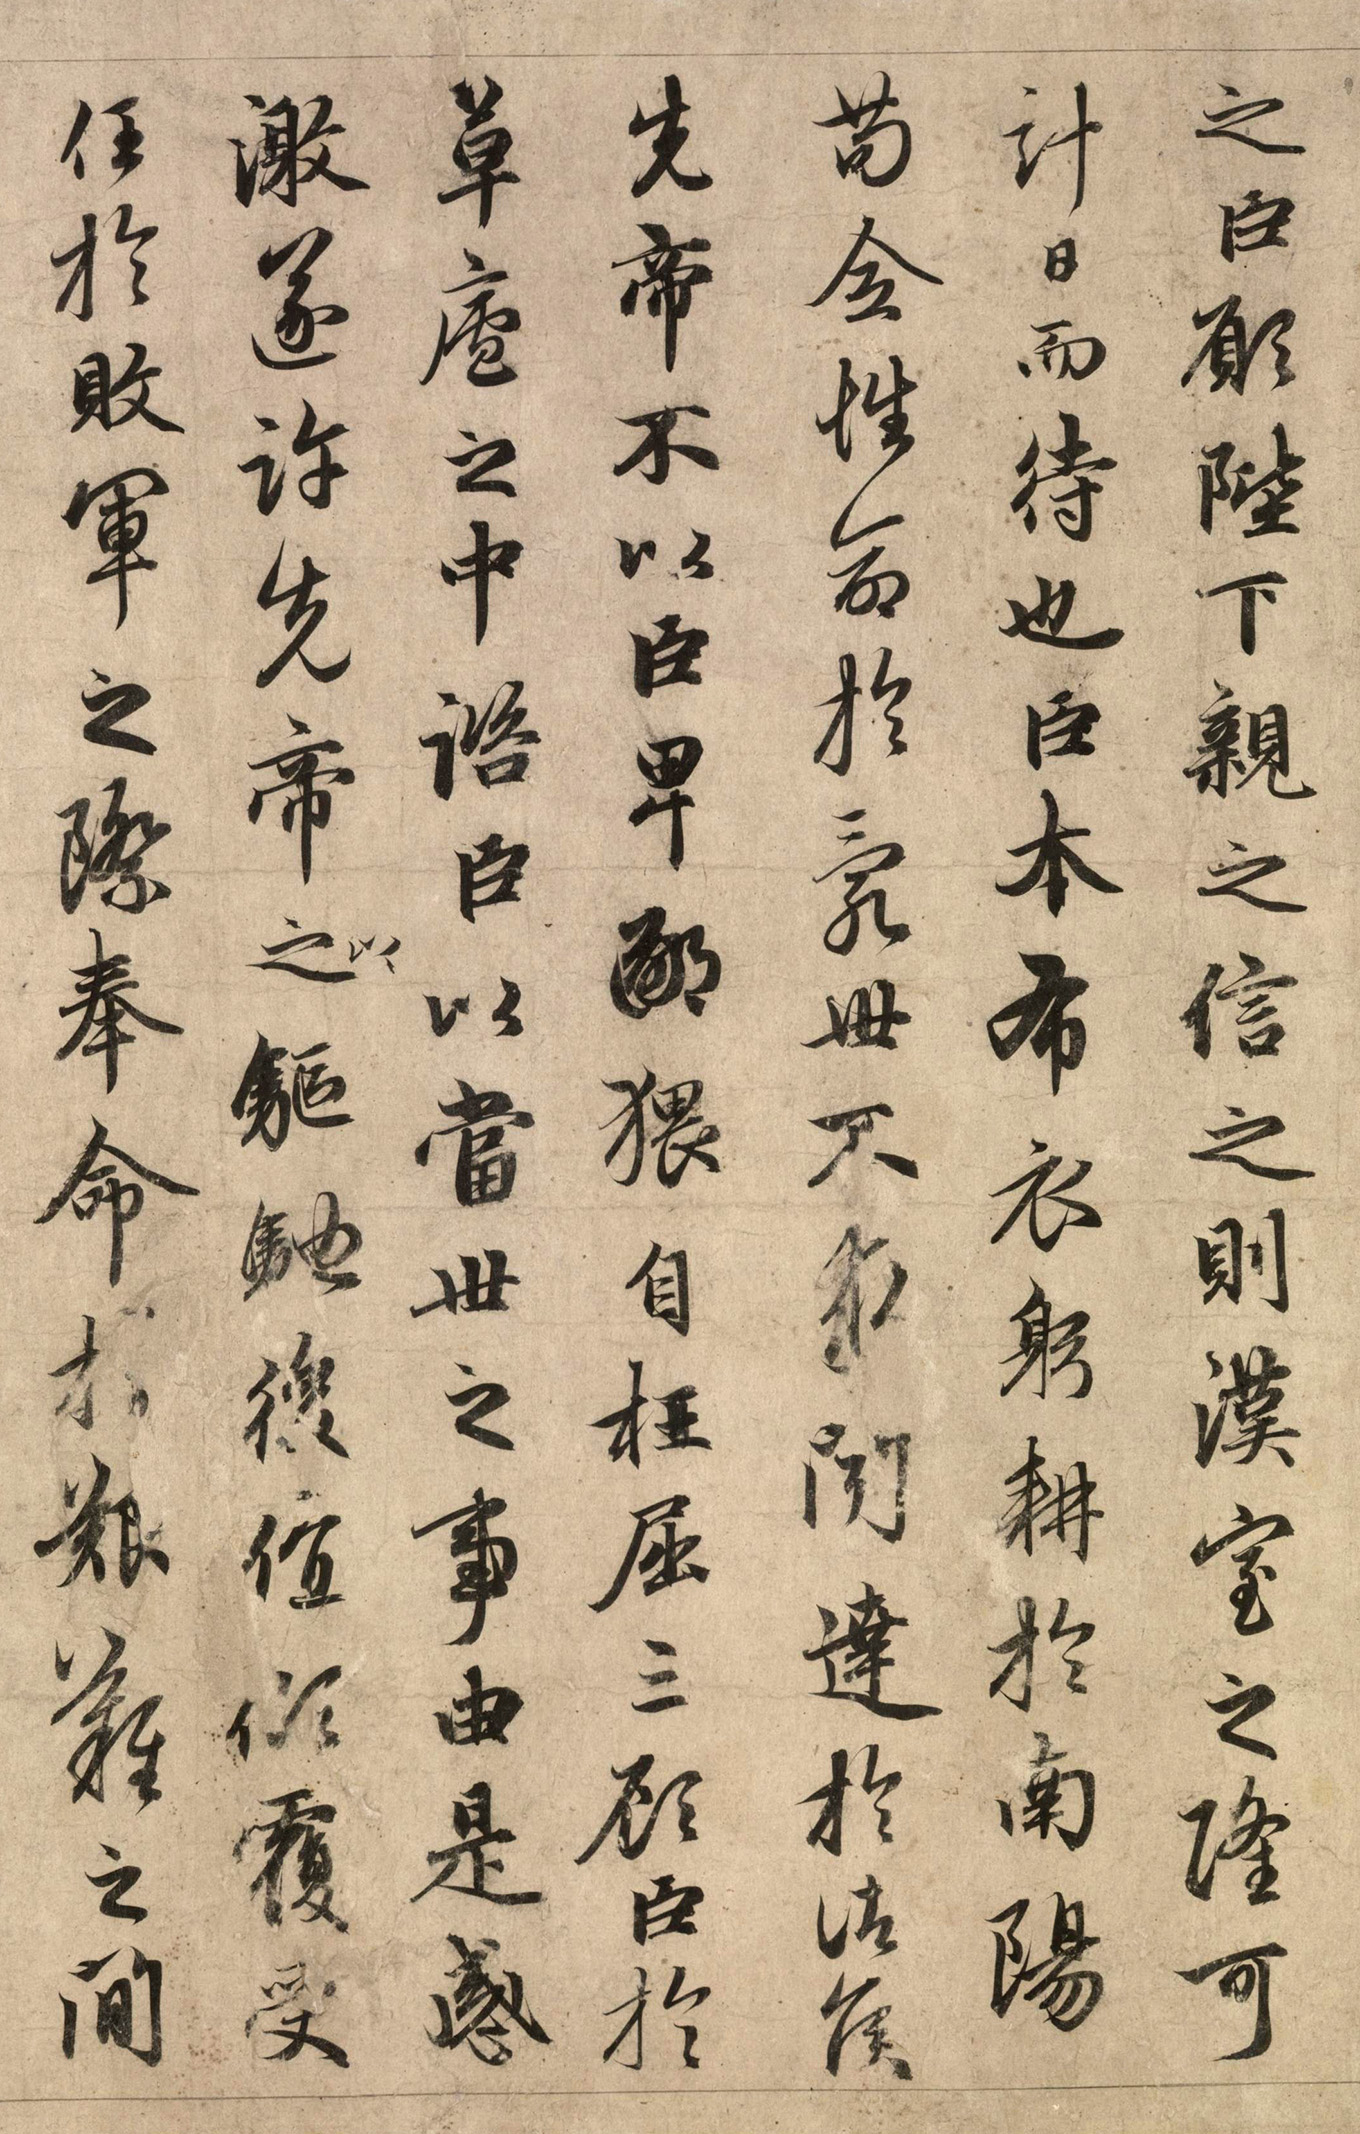 之臣願陛下親之信之則漢室之隆可
計日而待也臣本布衣躬耕於南陽
苟全性命於亂世不求聞達於諸侯
先帝不以臣卑鄙猥自枉屈三顧臣於
草廬之中諮臣以當世之事由是感
激遂許先帝之以驅馳後值傾覆受
任於敗軍之際奉命於艱難之間